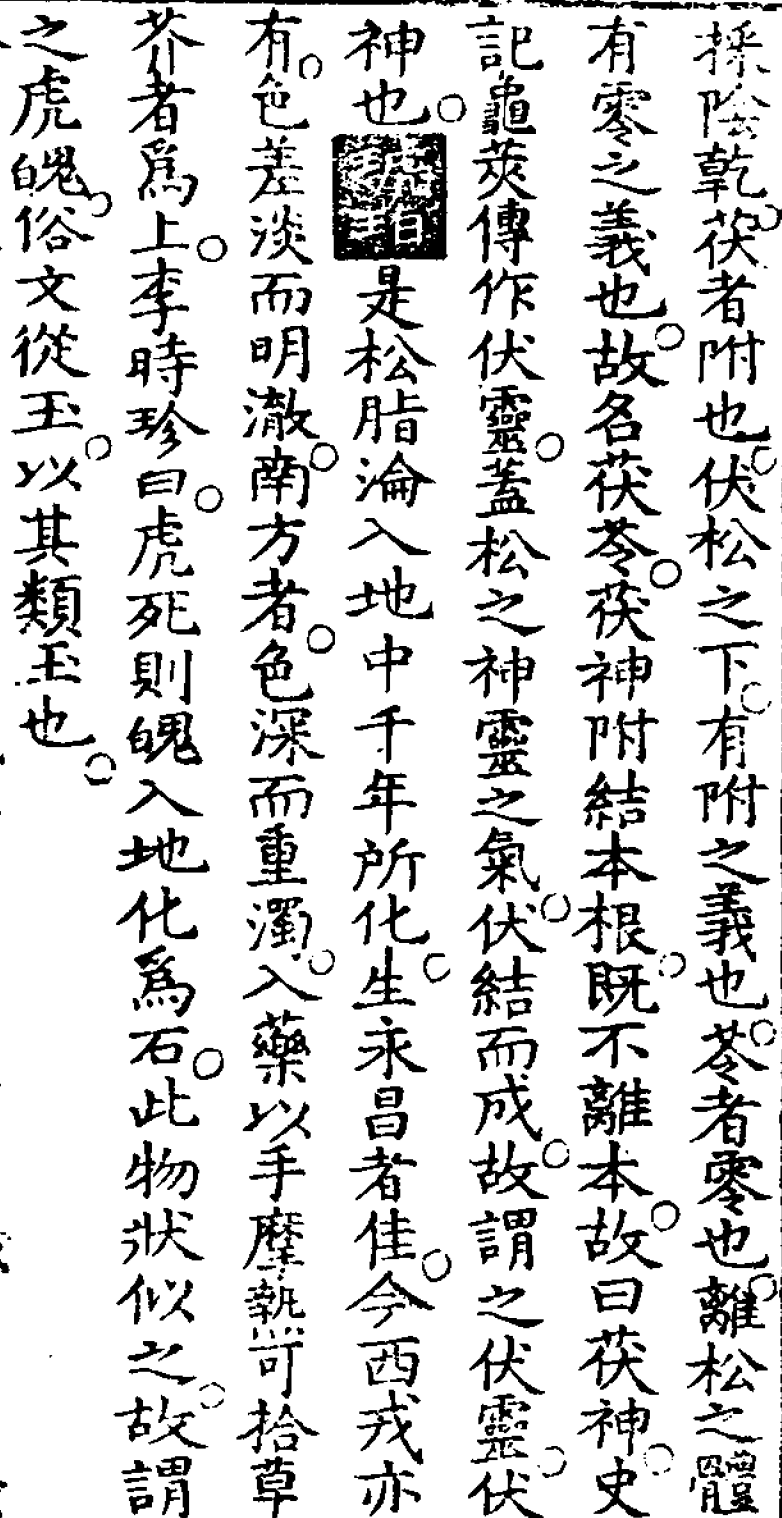 採陰乾茯者附也伏松之下有附之義也苓者零也離松之體
有零之義也故名茯苓茯神附結本根既不離本故曰茯神史
記龜莢傳作伏靈蓋松之神靈之氣伏結而成故謂之伏靈伏
神也 是松脂淪入地中千年所化生永昌者佳今西戎亦
有色差淡而明澈南方者色深而重濁入藥以手摩熱可拾草
芥者爲上李時珍曰虎死則魄入地化爲石此物狀似之故謂
之虎魄俗文從玉以其類玉也